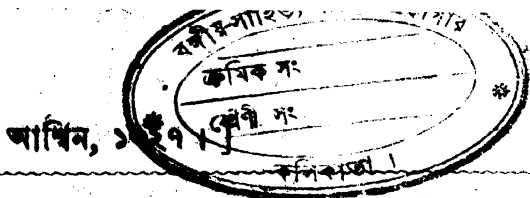 বঙ্গীয়-সাহিত্য
ক্রমিক সং
শ্রেণী সং
আশ্বিন,
কলিকাতা ।